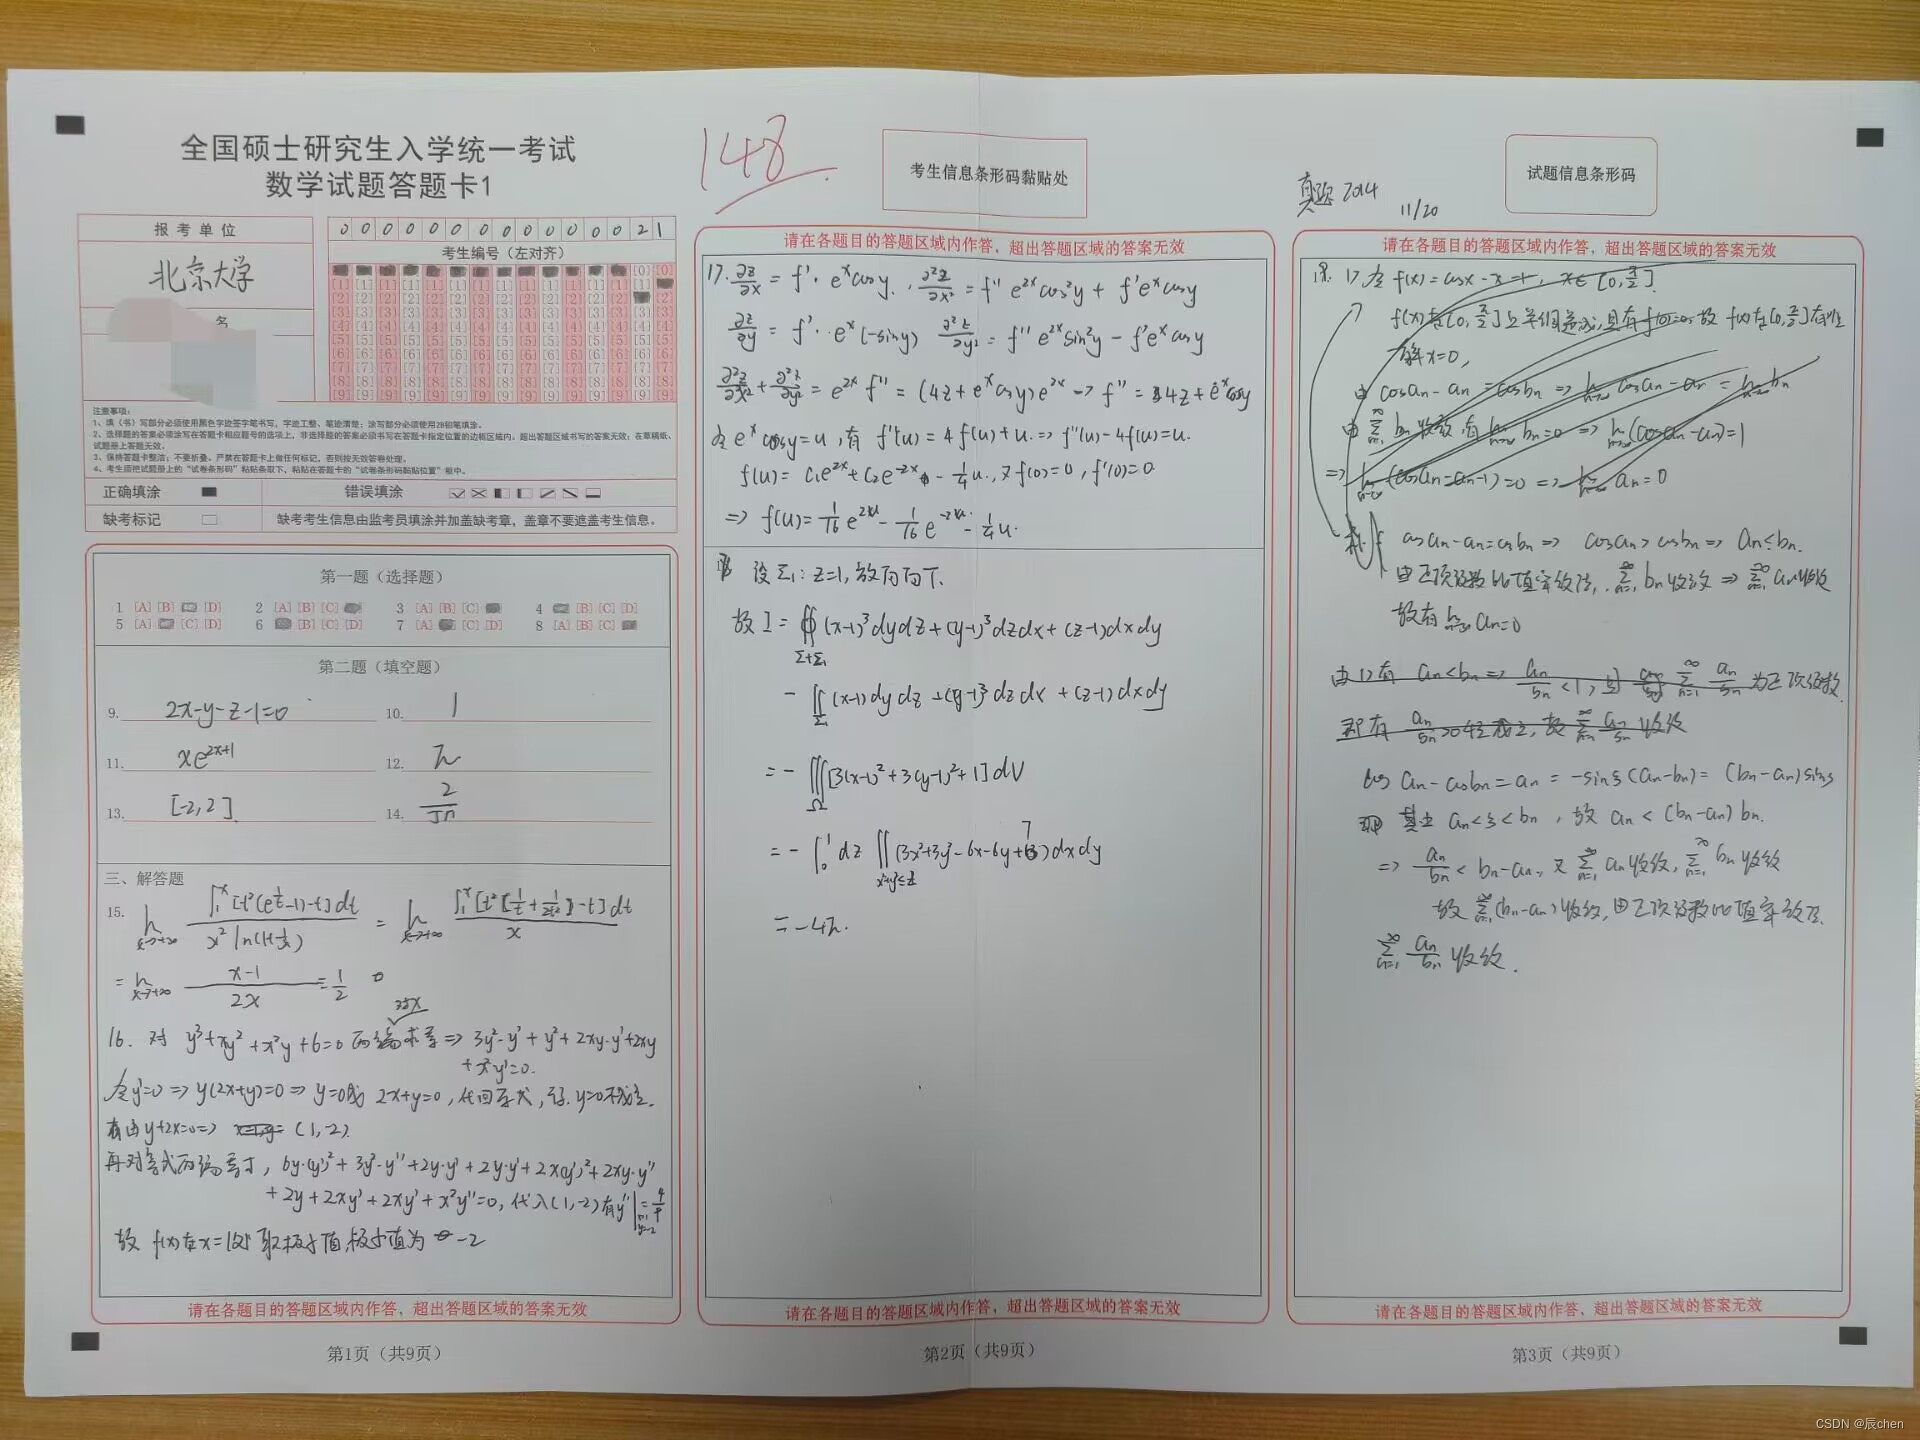 全国硕士研究生入学统一考试
数学试题答题卡1
148
考生信息条形码黏贴处
真题 2014
11/20
试题信息条形码
报考单位
北京大学
名
0 0 0 0 0 0 0 0 0 0 0 0 0 2 1
考生编号（左对齐）
注意事项：
1、填（书）写部分必须使用黑色字迹签字笔书写，字迹工整、笔迹清楚；涂写部分必须使用2B铅笔填涂。
2、选择题的答案必须涂写在答题卡相应题号的选项上，非选择题的答案必须书写在答题卡指定位置的边框区域内。超出答题区域书写的答案无效；在草稿纸、
试题册上答题无效。
3、保持答题卡整洁；不要折叠。严禁在答题卡上做任何标记，否则按无效答卷处理。
4、考生须把试题册上的“试卷条形码”粘贴条取下，粘贴在答题卡的“试卷条形码黏贴位置”框中。
正确填涂
错误填涂
缺考标记
缺考考生信息由监考员填涂并加盖缺考章，盖章不要遮盖考生信息。
第一题（选择题）
1 [A] [B] [D] 2 [A] [B] [C] 3 [A] [B] [C] 4 [B] [C] [D]
5 [A] [C] [D] 6 [B] [C] [D] 7 [A] [C] [D] 8 [A] [B] [C]
第二题（填空题）
9. 2x-y-z-1=0 10. 1
11. xe^{2x+1} 12. π
13. [-2,2]. 14. 2/√n
三、解答题
15. lim_{x→+∞} ∫_1^x [t²(e^{1/t}-1)-t]dt / x² ln(1+1/x) = lim_{x→+∞} ∫_1^x [t²[1/t+1/2t²]-t]dt / x
= lim_{x→+∞} x-1 / 2x = 1/2
对x
16. 对 y³+xy²+x²y+6=0 两端求导 => 3y²·y'+y²+2xy·y'+2xy
+x²y'=0.
令y'=0 => y(2x+y)=0 => y=0或 2x+y=0，代回原式，得. y=0不成立.
有由y+2x=0 => (1,-2).
再对等式两端导, 6y·(y')²+3y²·y''+2y·y'+2y·y'+2x(y')²+2xy·y''
+2y+2xy'+2xy'+x²y''=0，代入(1,-2)有y''|_{x=1, y=-2}=4/9
故 f(x)在x=1处取极小值,极小值为 -2
请在各题目的答题区域内作答，超出答题区域的答案无效
第1页（共9页）
请在各题目的答题区域内作答，超出答题区域的答案无效
17. ∂z/∂x = f'·e^x cosy. , ∂²z/∂x² = f''e^{2x}cos²y + f'e^x cosy
∂z/∂y = f'·e^x(-siny) ∂²z/∂y² = f''e^{2x}sin²y - f'e^x cosy
∂²z/∂x²+∂²z/∂y² = e^{2x}f'' = (4z+e^x cosy)e^{2x} → f'' = 4z+e^x cosy
令 e^x cosy=u, 有 f''(u)=4f(u)+u. => f''(u)-4f(u)=u.
f(u)= C₁e^{2x}+C₂e^{-2x} - 1/4 u. , 又 f(0)=0, f'(0)=0
=> f(u)= 1/16 e^{2u} - 1/16 e^{-2u} - 1/4 u.
18 设Σ₁: z=1, 故方向向下.
故 I = ∯_{Σ+Σ₁} (x-1)³dydz+(y-1)³dzdx+(z-1)dxdy
- ∬_{Σ₁} (x-1)dydz+(y-1)³dzdx+(z-1)dxdy
= - ∭_Ω [3(x-1)²+3(y-1)²+1]dV
= - ∫_0^1 dz ∬_{x²+y²≤z} (3x²+3y²-6x-6y+7)dxdy
= -4π.
请在各题目的答题区域内作答，超出答题区域的答案无效
第2页（共9页）
请在各题目的答题区域内作答，超出答题区域的答案无效
f(x)=cosx-x-1, x∈[0,π/2].
f(x)在[0,π/2]上单调递减,且有f(0)=0,故 f(x)在[0,π/2]有唯一
解x=0,
由 cosan-an=cosbn => lim cosan-an = lim bn
由 Σbn 收敛有 lim bn=0 => lim(cosan-an)=1
=> lim(cosan-an-1)=0 => lim an=0
cosan-an=cosbn => cosan>cosbn => an<bn.
由正项级数比值审敛法, Σbn收敛 => Σan收敛
故有 lim an=0
由1)有 an<bn => an/bn<1, Σ an/bn 为正项级数.
即有 an/bn>0恒成立, 故 Σ an/bn 收敛
cosan-cosbn=an = -sinξ(an-bn)= (bn-an)sinξ
其中 an<ξ<bn , 故 an<(bn-an)bn.
=> an/bn < bn-an, 又 Σan收敛, Σbn收敛
故 Σ(bn-an)收敛,由正项级数比值审敛法.
Σ an/bn 收敛.
请在各题目的答题区域内作答，超出答题区域的答案无效
第3页（共9页）
CSDN @辰chen